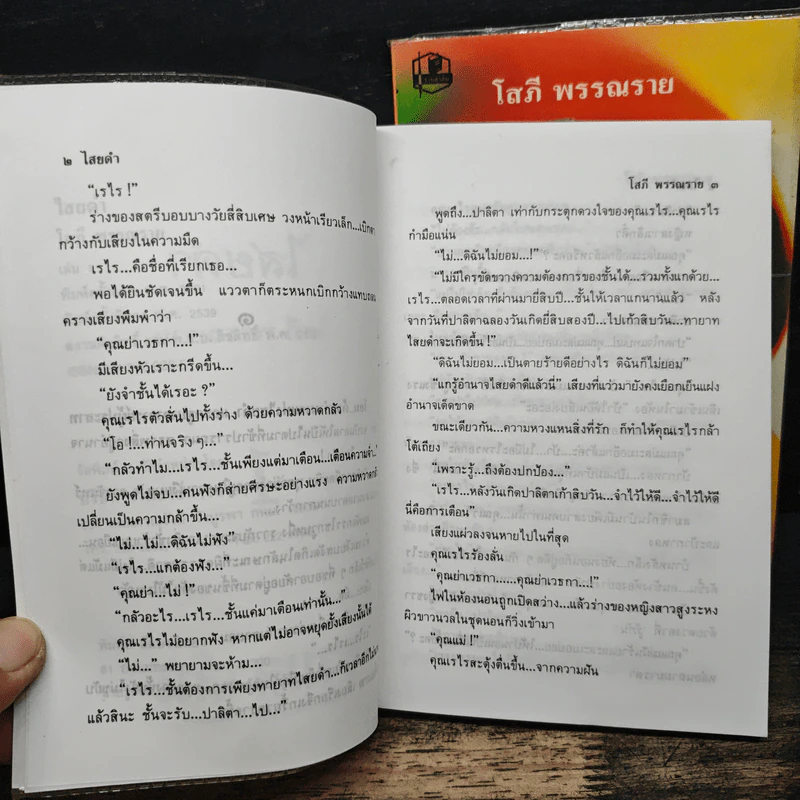 ๒ ไสยดำ
“เรไร !”
ร่างของสตรีบอบบางวัยสี่สิบเศษ วงหน้าเรียวเล็ก...เบิกตา
กว้างกับเสียงในความมืด
เรไร...คือชื่อที่เรียกเธอ...
พอได้ยินชัดเจนขึ้น แววตาก็ตระหนกเบิกกว้างแทบถลน
ครางเสียงพึมพำว่า
“คุณย่าเวธกา...!”
มีเสียงหัวเราะกรีดขึ้น...
“ยังจำชั้นได้เรอะ ?”
คุณเรไรตัวสั่นไปทั้งร่าง ด้วยความหวาดกลัว
“โอ !...ท่านจริง ๆ...”
“กลัวทำไม...เรไร...ชั้นเพียงแต่มาเตือน...เตือนความจำ...”
ยังพูดไม่จบ...คนฟังก็ส่ายศีรษะอย่างแรง ความหวาดกลัว
เปลี่ยนเป็นความกล้าขึ้น...
“ไม่...ไม่...ดิฉันไม่ฟัง”
“เรไร...แกต้องฟัง...”
“คุณย่า...ไม่ !”
“กลัวอะไร...เรไร...ชั้นแค่มาเตือนเท่านั้น...”
คุณเรไรไม่อยากฟัง หากแต่ไม่อาจหยุดยั้งเสียงนั้นได้
“ไม่...” พยายามจะห้าม...
“เรไร...ชั้นต้องการเพียงทายาทไสยดำ...ก็เวลาอีกไม่
แล้วสินะ ชั้นจะรับ...ปาลิตา...ไป...”
โสภี พรรณราย ๓
พูดถึง...ปาลิตา เท่ากับกระตุกดวงใจของคุณเรไร...คุณเรไร
กำมือแน่น
“ไม่...ดิฉันไม่ยอม...!”
“ไม่มีใครขัดขวางความต้องการของชั้นได้...รวมทั้งแกด้วย...
เรไร...ตลอดเวลาที่ผ่านมายี่สิบปี...ชั้นให้เวลาแกนานแล้ว หลัง
จากวันที่ปาลิตาฉลองวันเกิดยี่สิบสองปี...ไปเก้าสิบวัน...ทายาท
ไสยดำจะเกิดขึ้น !”
“ดิฉันไม่ยอม...เป็นตายร้ายดีอย่างไร ดิฉันก็ไม่ยอม”
“แกรู้อำนาจไสยดำดีแล้วนี่” เสียงที่แว่วมายังคงเยือกเย็นแฝง
อำนาจเด็ดขาด
ขณะเดียวกัน...ความหวงแหนสิ่งที่รัก ก็ทำให้คุณเรไรกล้า
โต้เถียง
“เพราะรู้...ถึงต้องปกป้อง...”
“เรไร...หลังวันเกิดปาลิตาเก้าสิบวัน...จำไว้ให้ดี...จำไว้ให้ดี
นี่คือการเตือน”
เสียงแผ่วลงจนหายไปในที่สุด
คุณเรไรร้องลั่น
“คุณย่าเวธกา......คุณย่าเวธกา...!”
ไฟในห้องนอนถูกเปิดสว่าง...แล้วร่างของหญิงสาวสูงระหง
ผิวขาวนวลในชุดนอนก็วิ่งเข้ามา
“คุณแม่ !”
คุณเรไรสะดุ้งตื่นขึ้น...จากความฝัน
โสภี พรรณราย